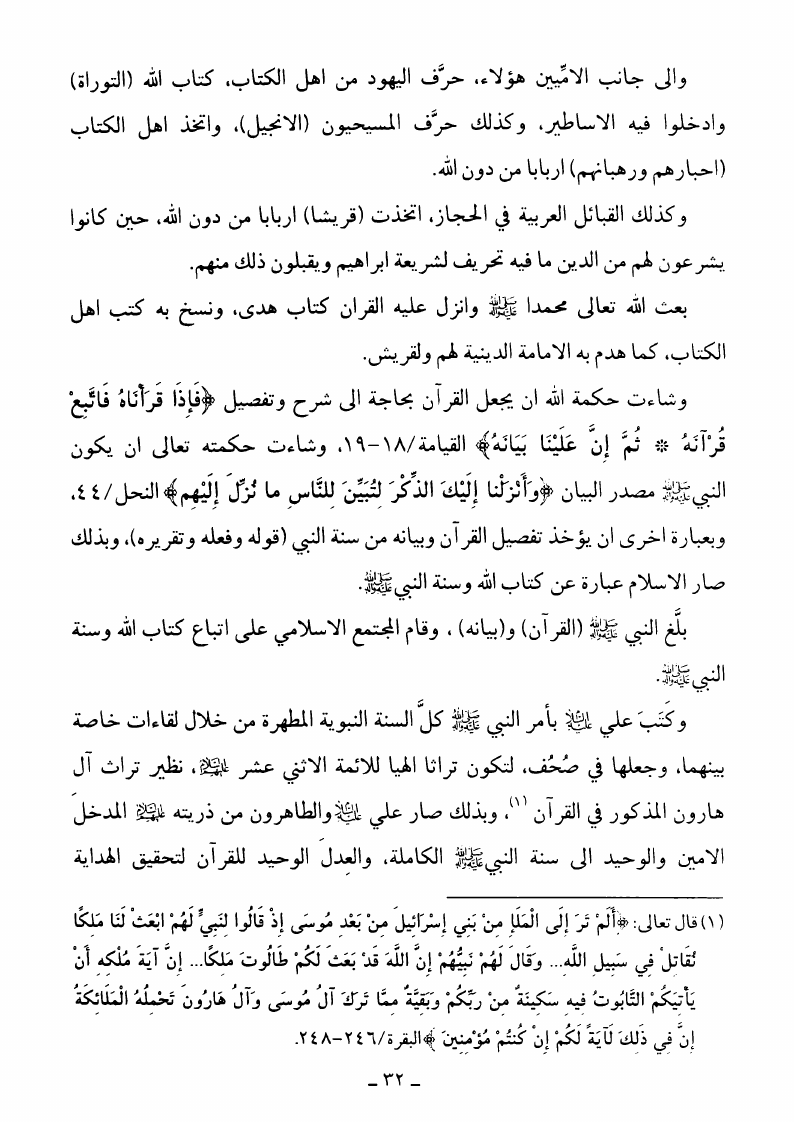 والى جانب الامِّيين هؤلاء، حرَّف اليهود من اهل الكتاب، كتاب الله (التوراة)
وادخلوا فيه الاساطير، وكذلك حرَّف المسيحيون (الانجيل)، واتخذ اهل الكتاب
(احبارهم ورهبانهم) اربابا من دون الله.
وكذلك القبائل العربية في الحجاز، اتخذت (قريشا) اربابا من دون الله، حين كانوا
يشرعون لهم من الدين ما فيه تحريف لشريعة ابراهيم ويقبلون ذلك منهم.
بعث الله تعالى محمدا ﷺ وانزل عليه القران كتاب هدى، ونسخ به كتب اهل
الكتاب، كما هدم به الامامة الدينية لهم ولقريش.
وشاءت حكمة الله ان يجعل القرآن بحاجة الى شرح وتفصيل ﴿فَإِذَا قَرَأْنَاهُ فَاتَّبِعْ
قُرْآنَهُ * ثُمَّ إِنَّ عَلَيْنَا بَيَانَهُ﴾ القيامة/١٨-١٩، وشاءت حكمته تعالى ان يكون
النبي ﷺ مصدر البيان ﴿وَأَنْزَلْنا إِلَيْكَ الذِّكْرَ لِتُبَيِّنَ لِلنَّاسِ ما نُزِّلَ إِلَيْهِم﴾ النحل/٤٤،
وبعبارة اخرى ان يؤخذ تفصيل القرآن وبيانه من سنة النبي (قوله وفعله وتقريره)، وبذلك
صار الاسلام عبارة عن كتاب الله وسنة النبي ﷺ.
بلَّغ النبي ﷺ (القرآن) و(بيانه) ، وقام المجتمع الاسلامي على اتباع كتاب الله وسنة
النبي ﷺ.
وكَتَبَ علي عليه السلام بأمر النبي ﷺ كلَّ السنة النبوية المطهرة من خلال لقاءات خاصة
بينهما، وجعلها في صُحُف، لتكون تراثا الهيا للائمة الاثني عشر عليهم السلام، نظير تراث آل
هارون المذكور في القرآن (١)، وبذلك صار علي عليه السلام والطاهرون من ذريته عليهم السلام المدخلَ
الامين والوحيد الى سنة النبي ﷺ الكاملة، والعِدلَ الوحيد للقرآن لتحقيق الهداية
(١) قال تعالى: ﴿أَلَمْ تَرَ إِلَى الْمَلَإِ مِنْ بَنِي إِسْرَائِيلَ مِنْ بَعْدِ مُوسَى إِذْ قَالُوا لِنَبِيٍّ لَهُمُ ابْعَثْ لَنَا مَلِكًا
نُقَاتِلْ فِي سَبِيلِ اللَّهِ... وَقَالَ لَهُمْ نَبِيُّهُمْ إِنَّ اللَّهَ قَدْ بَعَثَ لَكُمْ طَالُوتَ مَلِكًا... إِنَّ آيَةَ مُلْكِهِ أَنْ
يَأْتِيَكُمُ التَّابُوتُ فِيهِ سَكِينَةٌ مِنْ رَبِّكُمْ وَبَقِيَّةٌ مِمَّا تَرَكَ آلُ مُوسَى وَآلُ هَارُونَ تَحْمِلُهُ الْمَلَائِكَةُ
إِنَّ فِي ذَلِكَ لَآيَةً لَكُمْ إِنْ كُنْتُمْ مُؤْمِنِينَ﴾ البقرة/٢٤٦-٢٤٨.
_ ٣٢ _